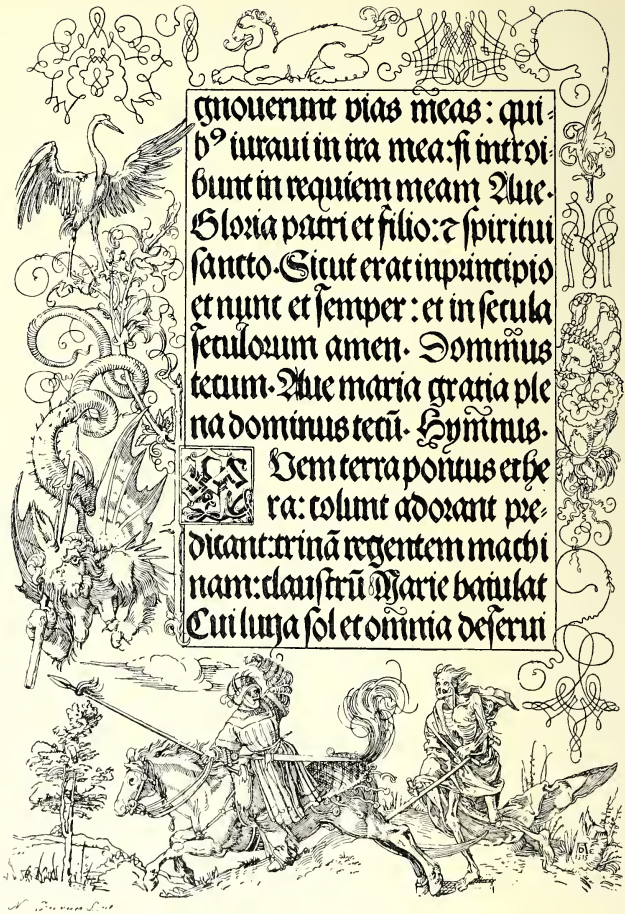 gnouerunt vias meas: qui⸗
bꝰ iuraui in ira mea: si introi⸗
bunt in requiem meam Aue·
Gloria patri et filio: ⁊ spiritui
sancto· Sicut erat in principio
et nunc et semper: et in secula
seculorum amen· Dominus
tecum· Aue maria gratia ple
na dominus tecū· Hymnus·
Quem terra pontus ethe
ra: colunt adorant pre⸗
dicant: trinā regentem machi
nam: claustrū Marie baiulat
Cui luna sol et omnia deserui
1515